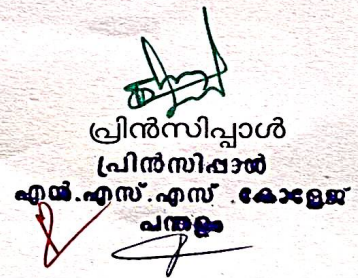 പ്രിൻസിപ്പാൾ
പ്രിൻസിപ്പാൽ
എൻ.എസ്.എസ്.കോളേജ്
പന്തളം